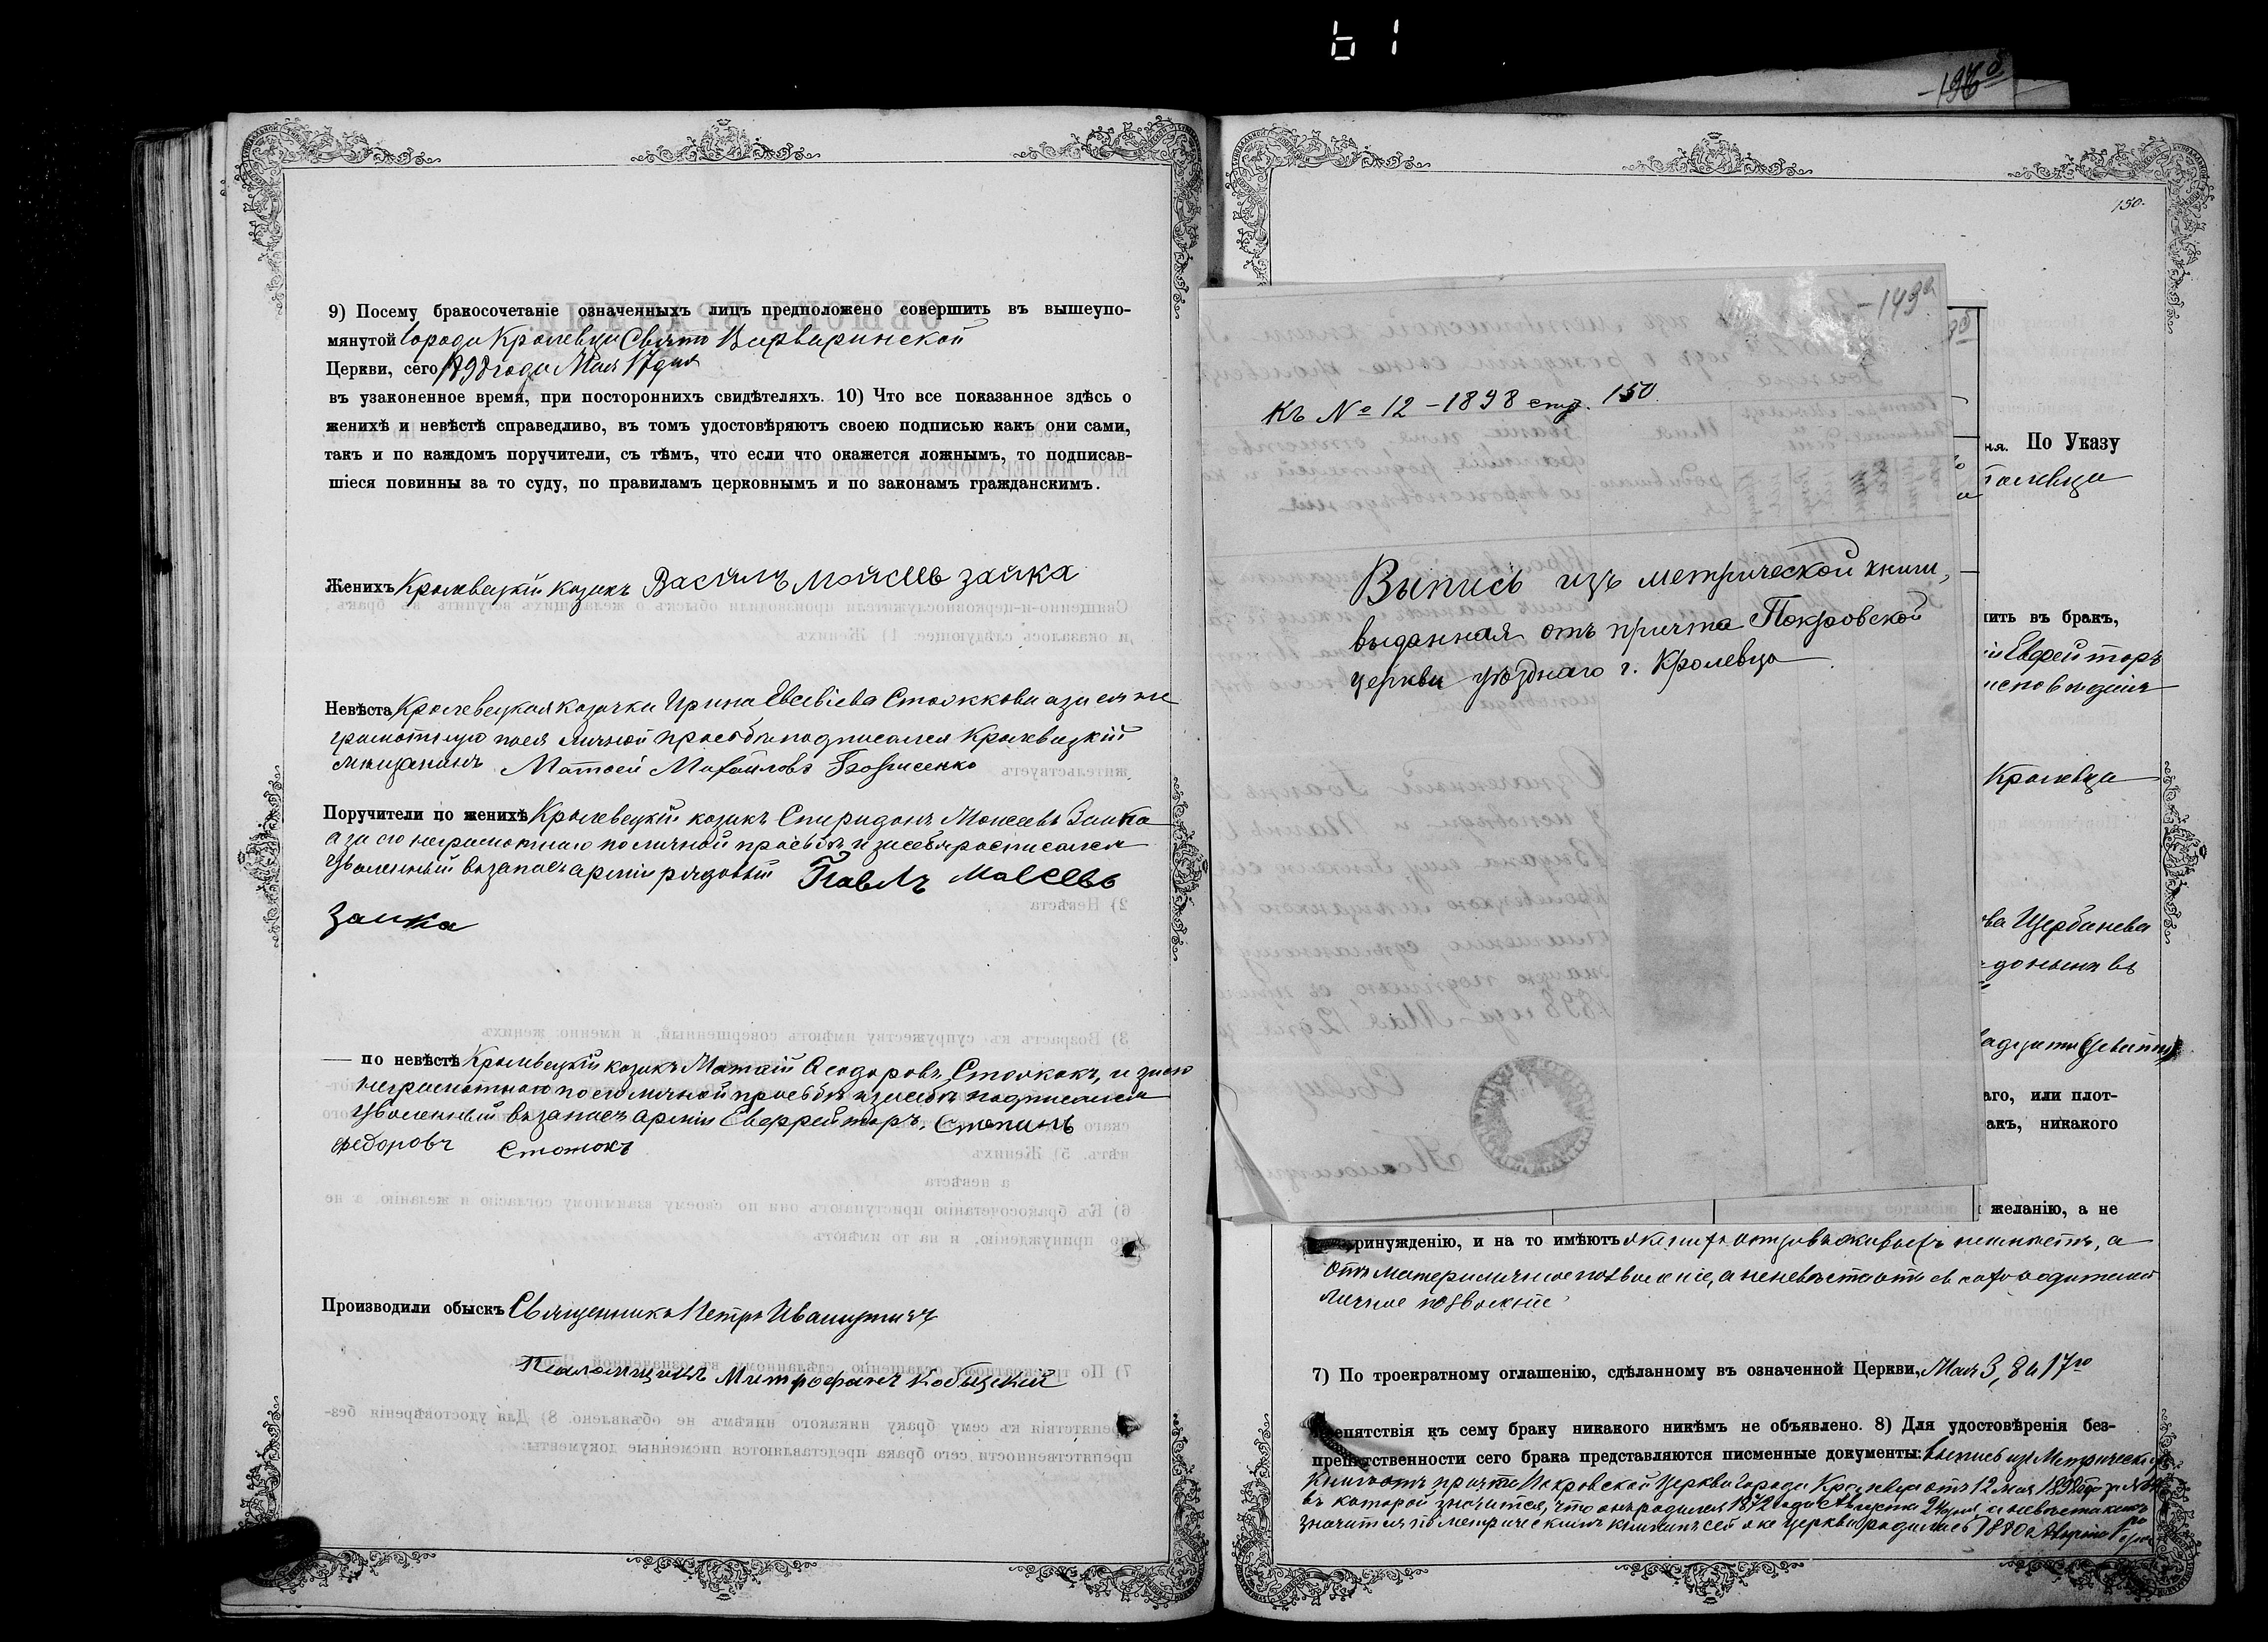 61
150.
9) Посему бракосочетаніе означенныхъ лицъ предположено совершить въ вышеупо-
мянутой города Кролевца Свято Варваринской
Церкви, сего 1898 года Мая 17 дня
въ узаконенное время, при постороннихъ свидѣтеляхъ. 10) Что все показанное здѣсь о
женихѣ и невѣстѣ справедливо, въ томъ удостовѣряютъ своею подписью какъ они сами,
такъ и по каждомъ поручители, съ тѣмъ, что если что окажется ложнымъ, то подписав-
шіеся повинны за то суду, по правиламъ церковнымъ и по законамъ гражданскимъ.
Женихъ Кролевецкій козакъ Василъ Мойсевъ заика
Невѣста Кролевецкая козачка Ирина Евсевіева а за ея не
грамотную по ея личной просьбѣ подписался Кролевецкій
мѣщанинъ Матвей Михайловъ Борисенко
Поручители по женихѣ Кролевецкій козакъ Спиридонъ Моисеевъ Заика
а за его неграмотнаго по личной просьбѣ и за себя росписался
уволенный въ запасъ арміи рядовый Павелъ Мовсевъ
Заика
— по невѣстѣ Кролевецкій козакъ Ѳеодоровъ а за его
неграмотнаго по его личной просьбѣ и за себя подписался
уволенный въ запасъ арміи Евфрейторъ, Степанъ
Федоровъ
Производили обыскъ Священникъ Петръ
Псаломщикъ Митрофанъ Кобыский
-149а
Къ № 12 - 1898 стр. 150.
Выпись изъ метрической книги,
выданная отъ причта Покровской
церкви уѣзднаго г. Кролевца
ня. По Указу
ролевца
пить въ бракъ,
Евфрейторъ
исповѣданія
Кролевца
ва Щербанева
донынѣ въ
адцати девяти
аго, или плот-
акъ, никакого
желанію, а не
принужденію, и на то имѣютъ женихъ отца въ живыхъ неимѣетъ, а
отъ матери личное позволеніе, а невѣста отъ своихъ родителей
личное позволеніе
7) По троекратному оглашенію, сдѣланному въ означенной Церкви, Мая 3, 8 и 17го
препятствія къ сему браку никакого никѣмъ не объявлено. 8) Для удостовѣренія без-
препятственности сего брака представляются писменные документы: выпись изъ Метрической
книги отъ причта Покровской Церкви города Кролевца отъ 12 мая 1898 года за №
въ которой значится, что онъ родился 1872 года Августа а невѣста какъ
значится по метрическимъ книгамъ сей же церкви родилась 1880